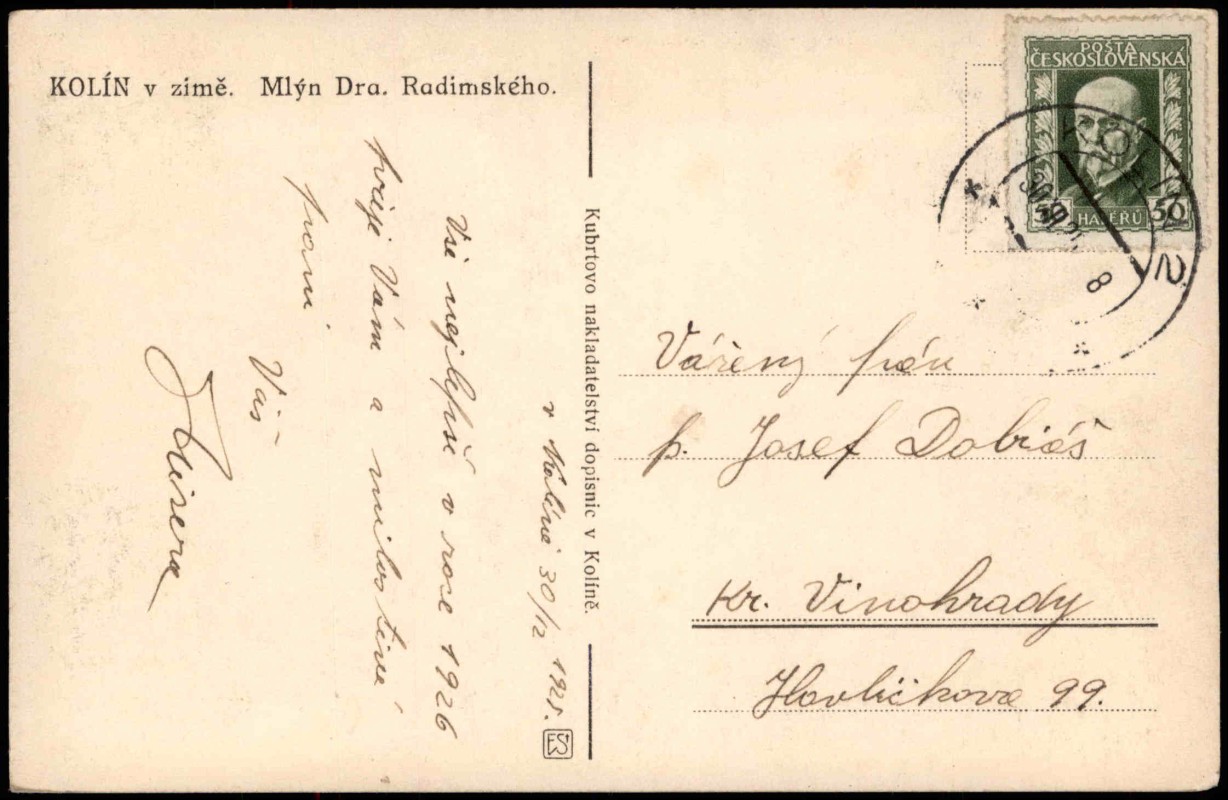 KOLÍN v zimě. Mlýn Dra. Radimského.
POŠTA
ČESKOSLOVENSKÁ
50 HALÉŘŮ 50
KOLÍN 2
8
Kubrtovo nakladatelství dopisnic v Kolíně.
v Kolíně 30/12 1925.
Vše nejlepší v roce 1926
přeje Vám a milostivé
paní
Váš
Vážený pán
p. Josef Dobiáš
Kr. Vinohrady
Havlíčkova 99.